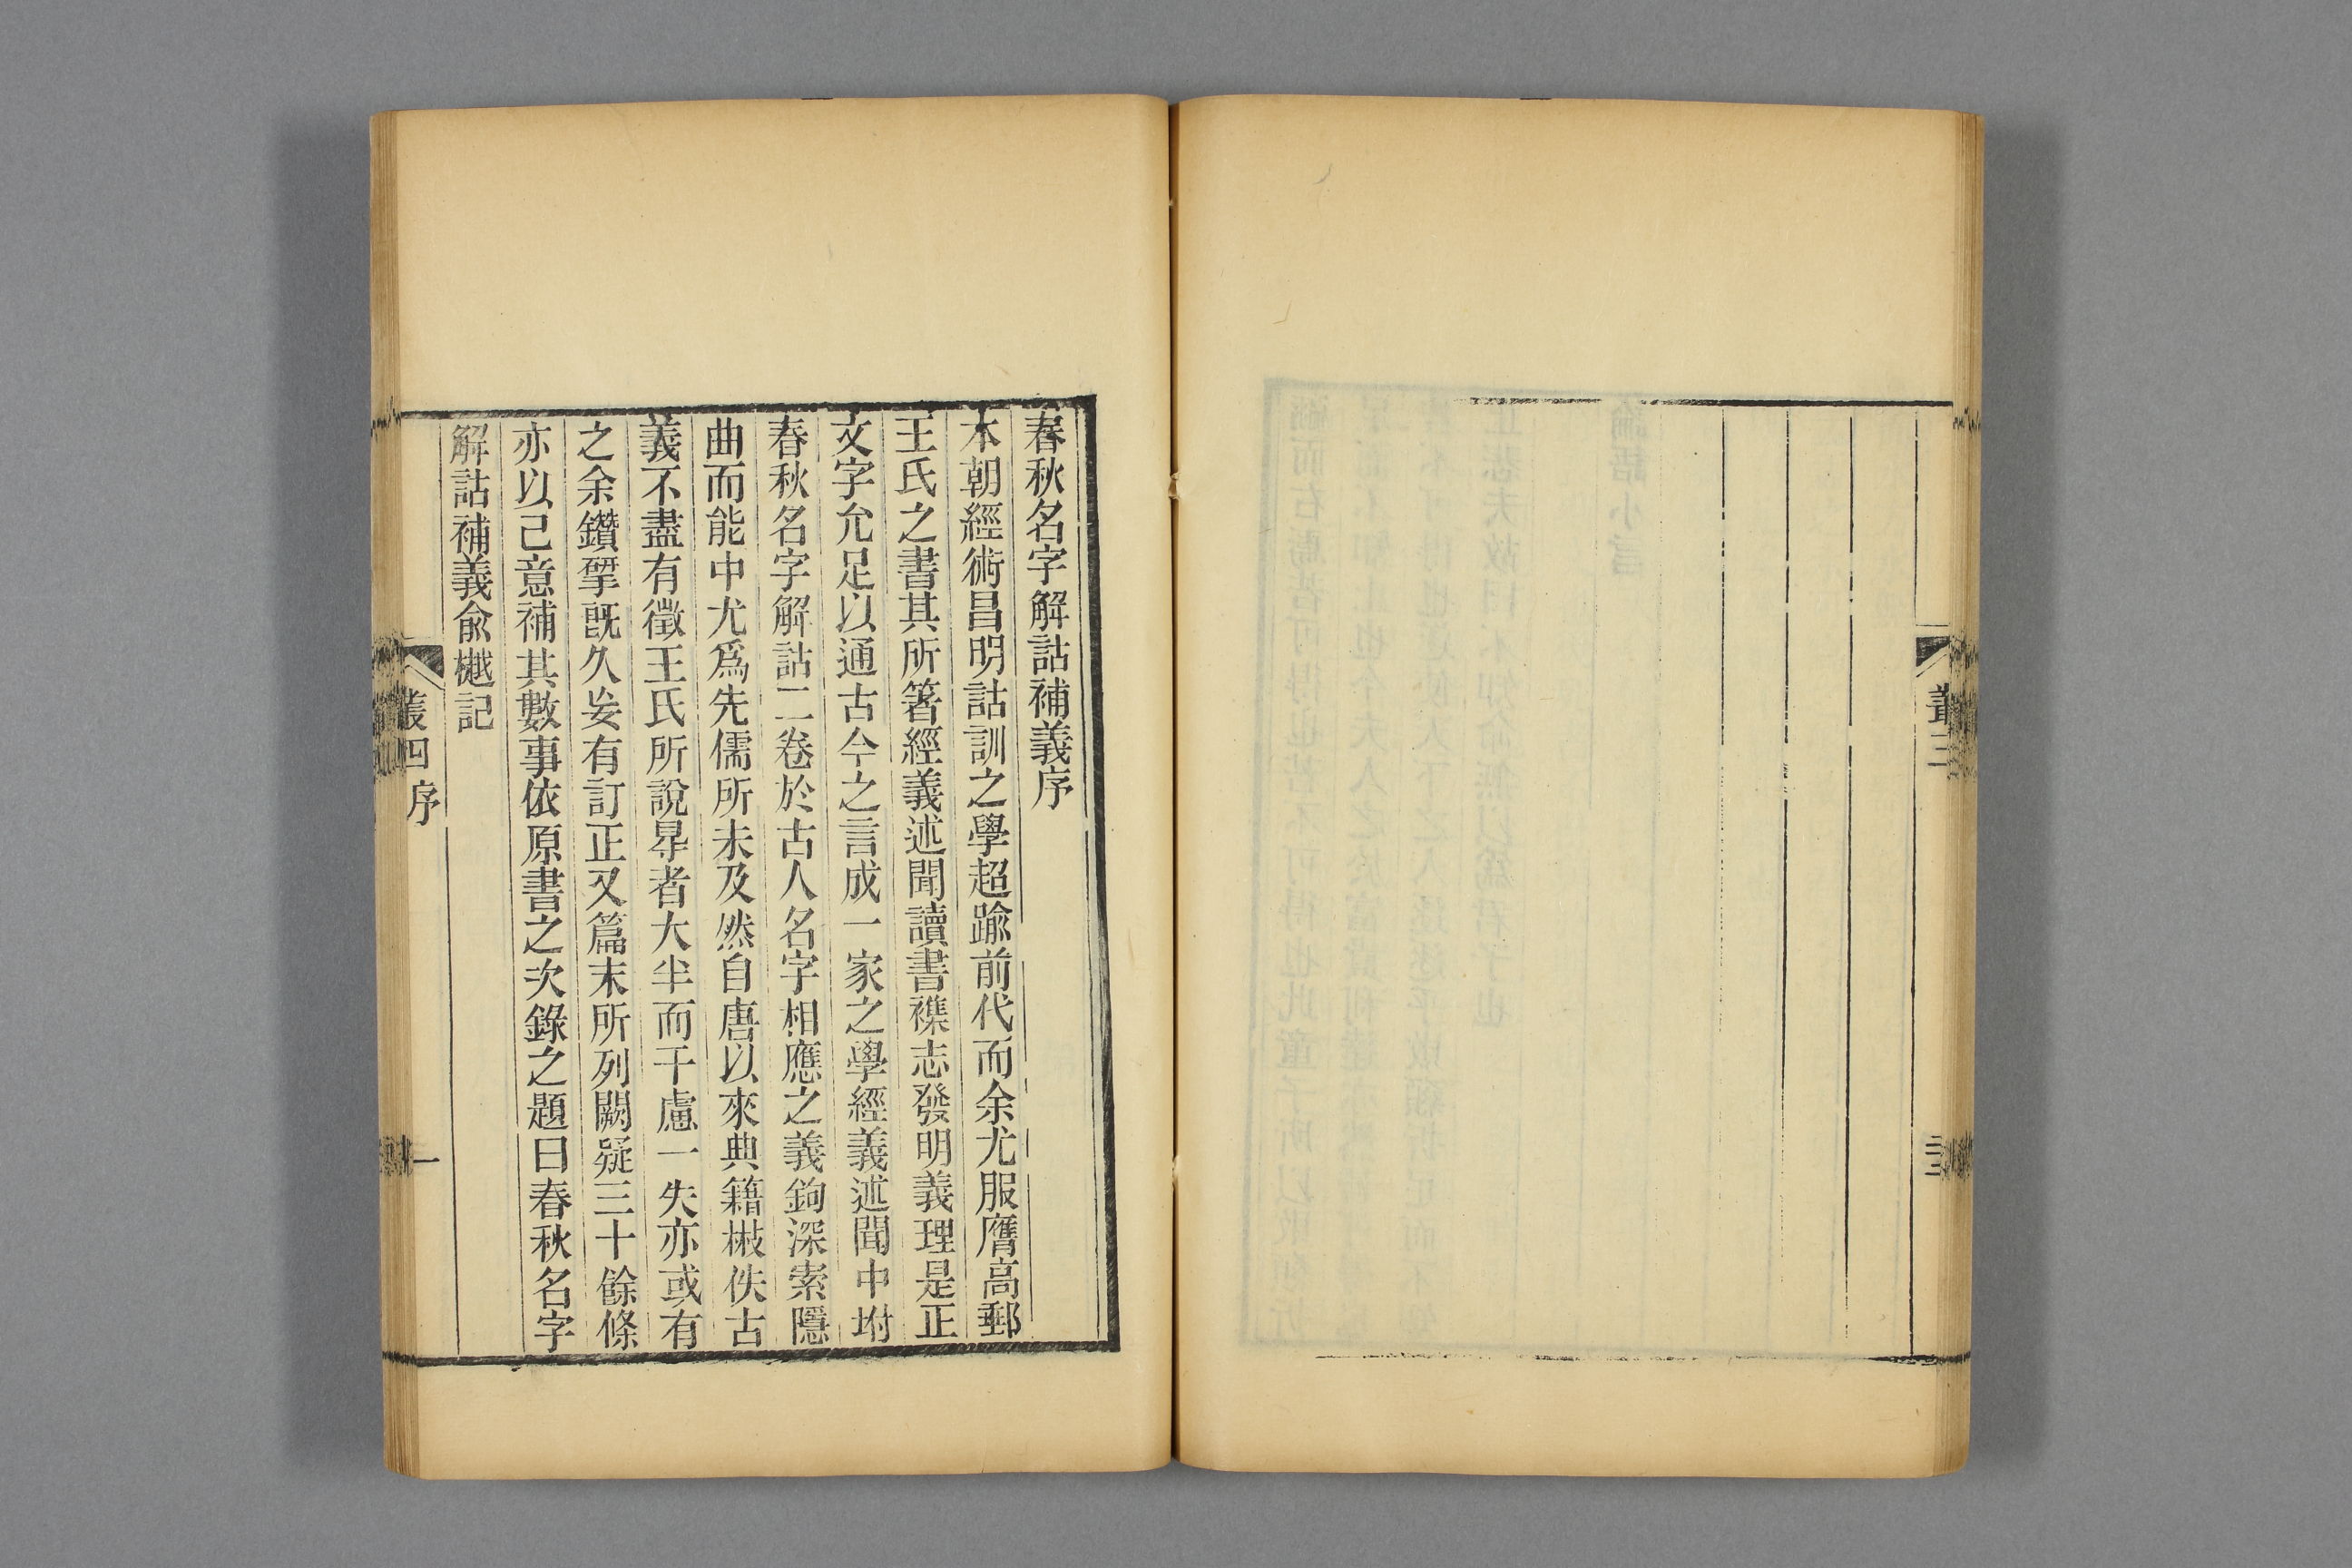 叢三
三三
春秋名字解詁補義序
本朝經術昌明詁訓之學超踰前代而余尤服膺高郵
王氏之書其所箸經義述聞讀書襍志發明義理是正
文字允足以通古今之言成一家之學經義述聞中坿
春秋名字解詁二卷於古人名字相應之義鉤深索隱
曲而能中尤爲先儒所未及然自唐以來典籍㪚佚古
義不盡有徵王氏所說㝵者大半而千慮一失亦或有
之余鑽揅旣久妄有訂正又篇末所列闕疑三十餘條
亦以己意補其數事依原書之次錄之題曰春秋名字
解詁補義俞樾記
叢四序
一